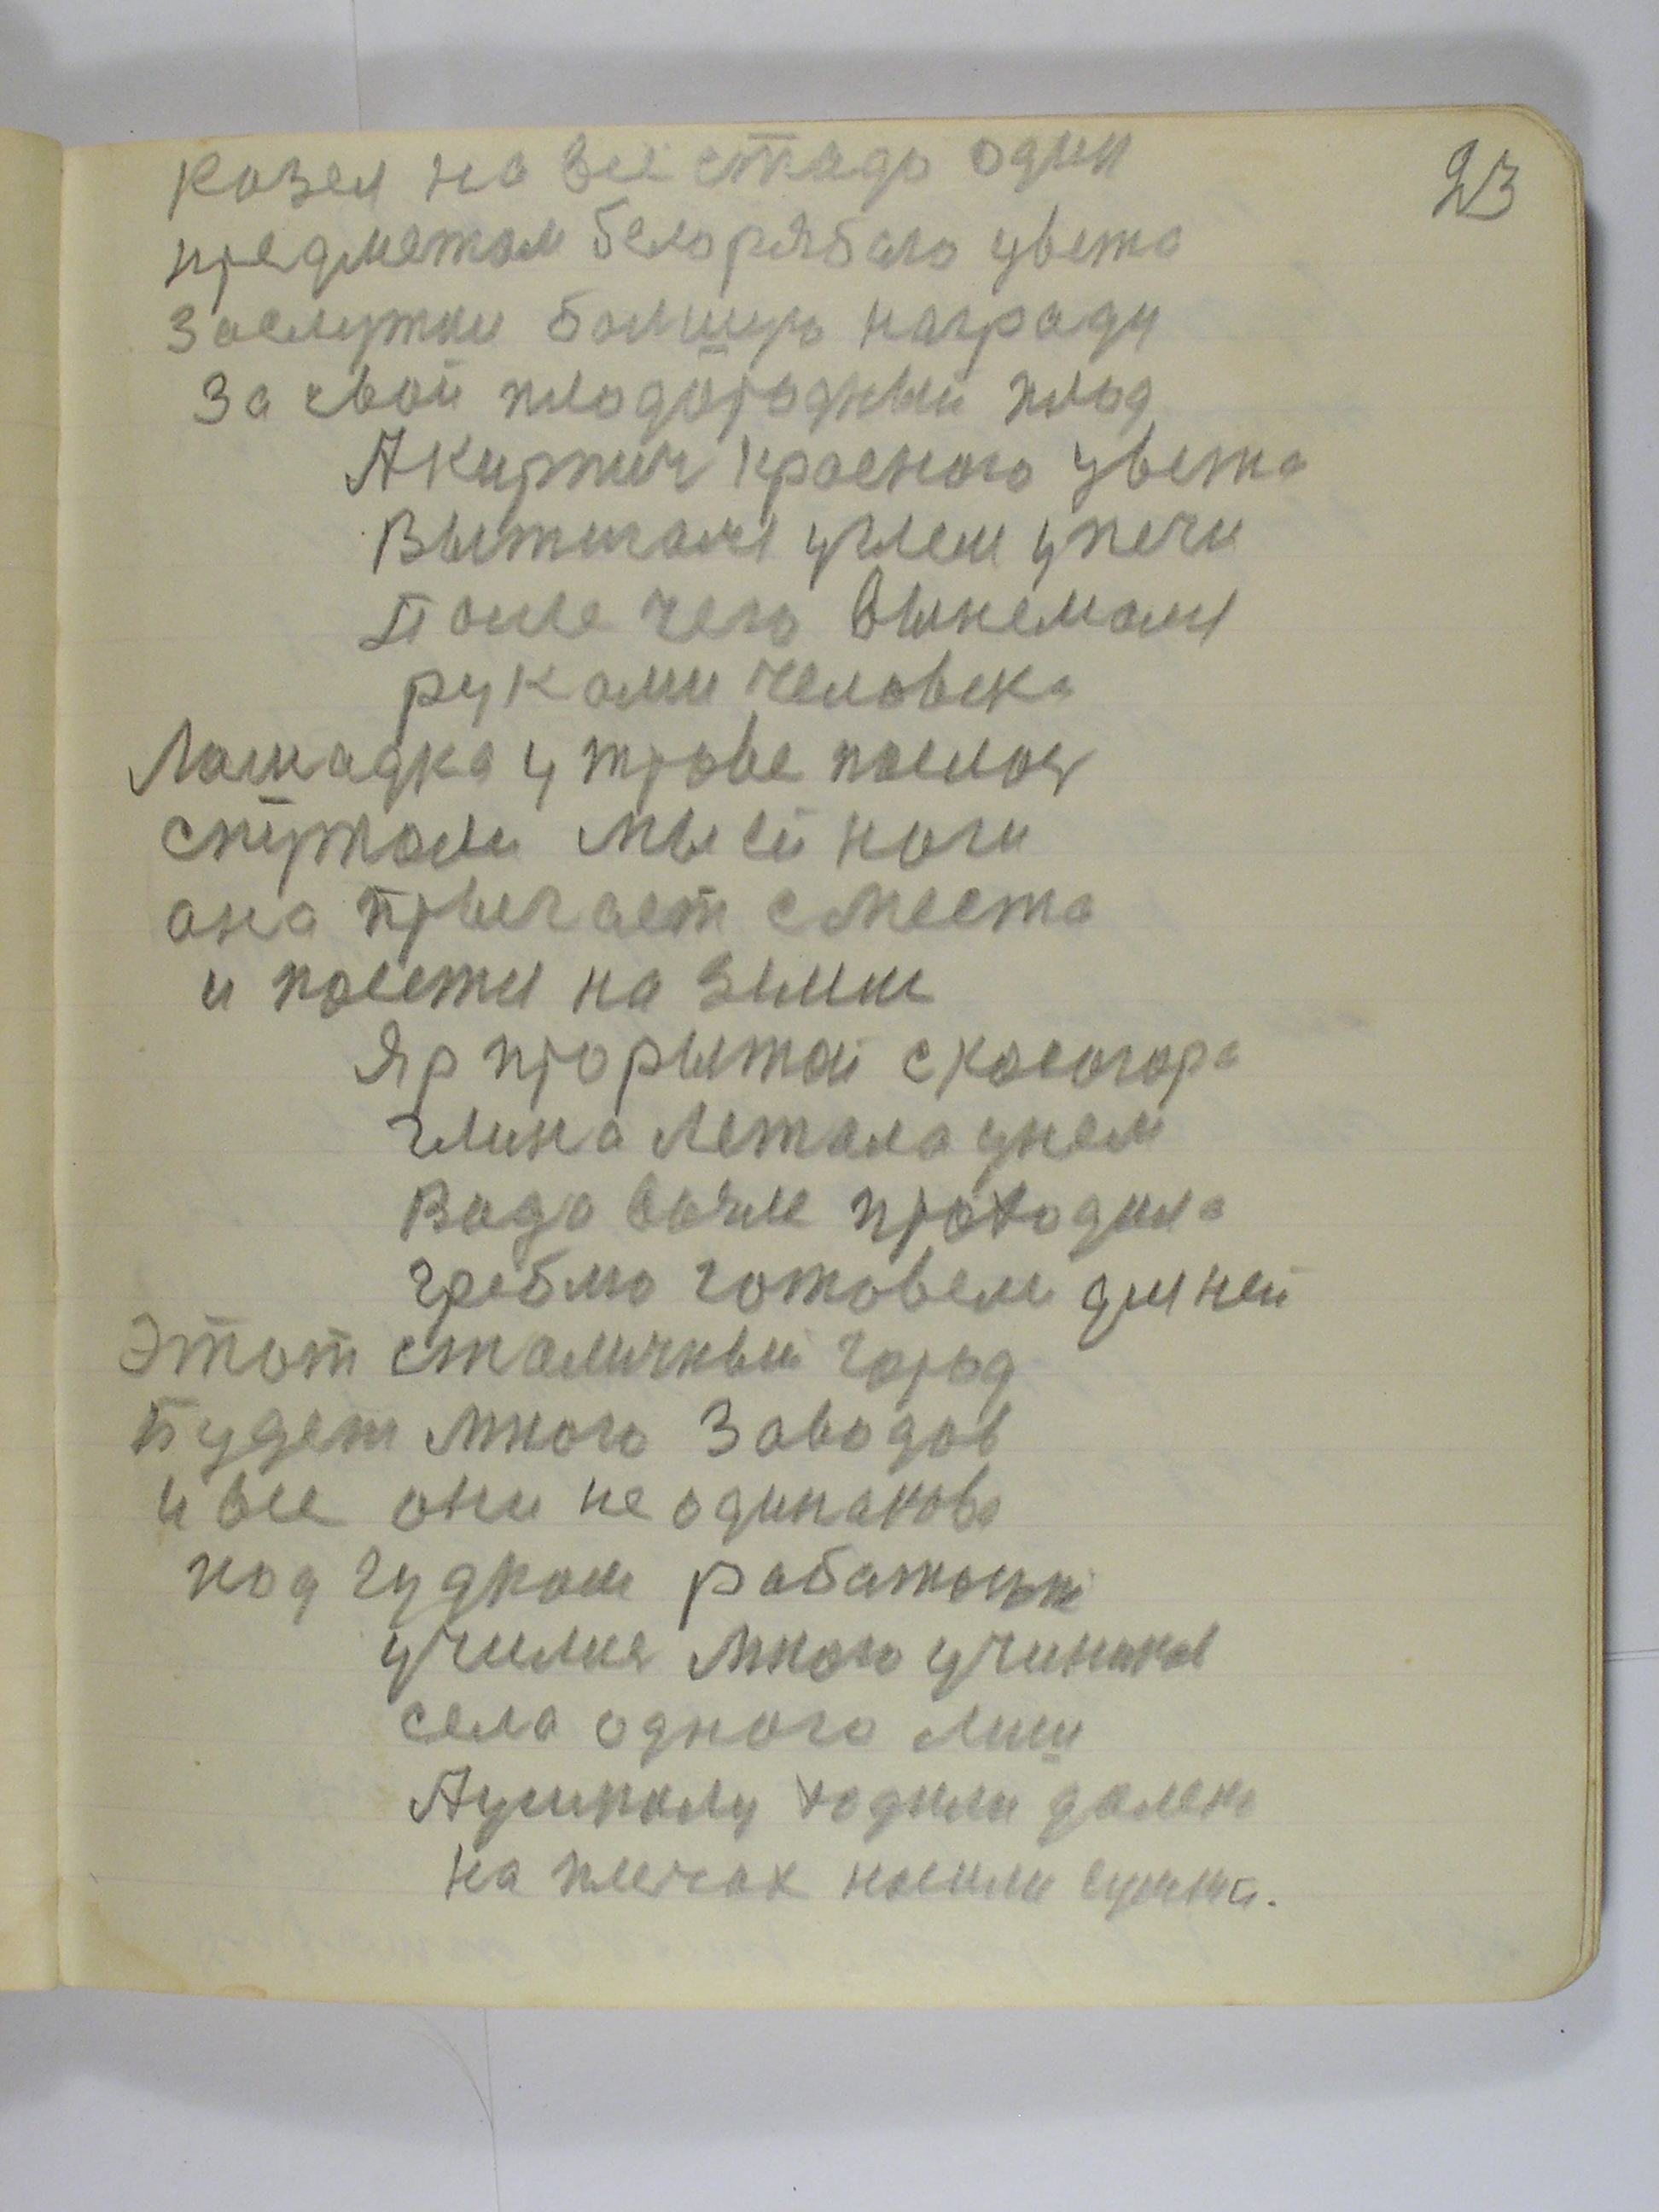 23
Козел на все стадо один
предметом белорябаго цвета
Заслужил большую награду
За свой плодородный плод
А кирпич красного цвета
Выжигаля углем у печи
После чего вынемаля
руками человека
Лошадка у траве паслася
спутали мы ей ноги
она прыгает с места
и пасется на земли
Яр прорытой с косогора
глина летала у нем
Вада возле проходила
греблю готовели для ней
Этот сталичный город
Будет много Заводов
и все они не одинаково
под гудком рабатоют
училися много учиников
села одного лиш
А у школу ходили далеко
на плечах носили сумки.